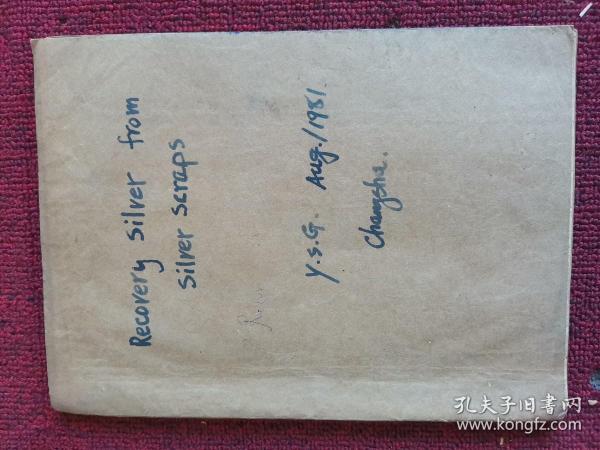 Recovery silver from
silver scraps
Y.S.G. Aug./1981.
Changsha.
孔夫子旧书网
www.kongfz.com